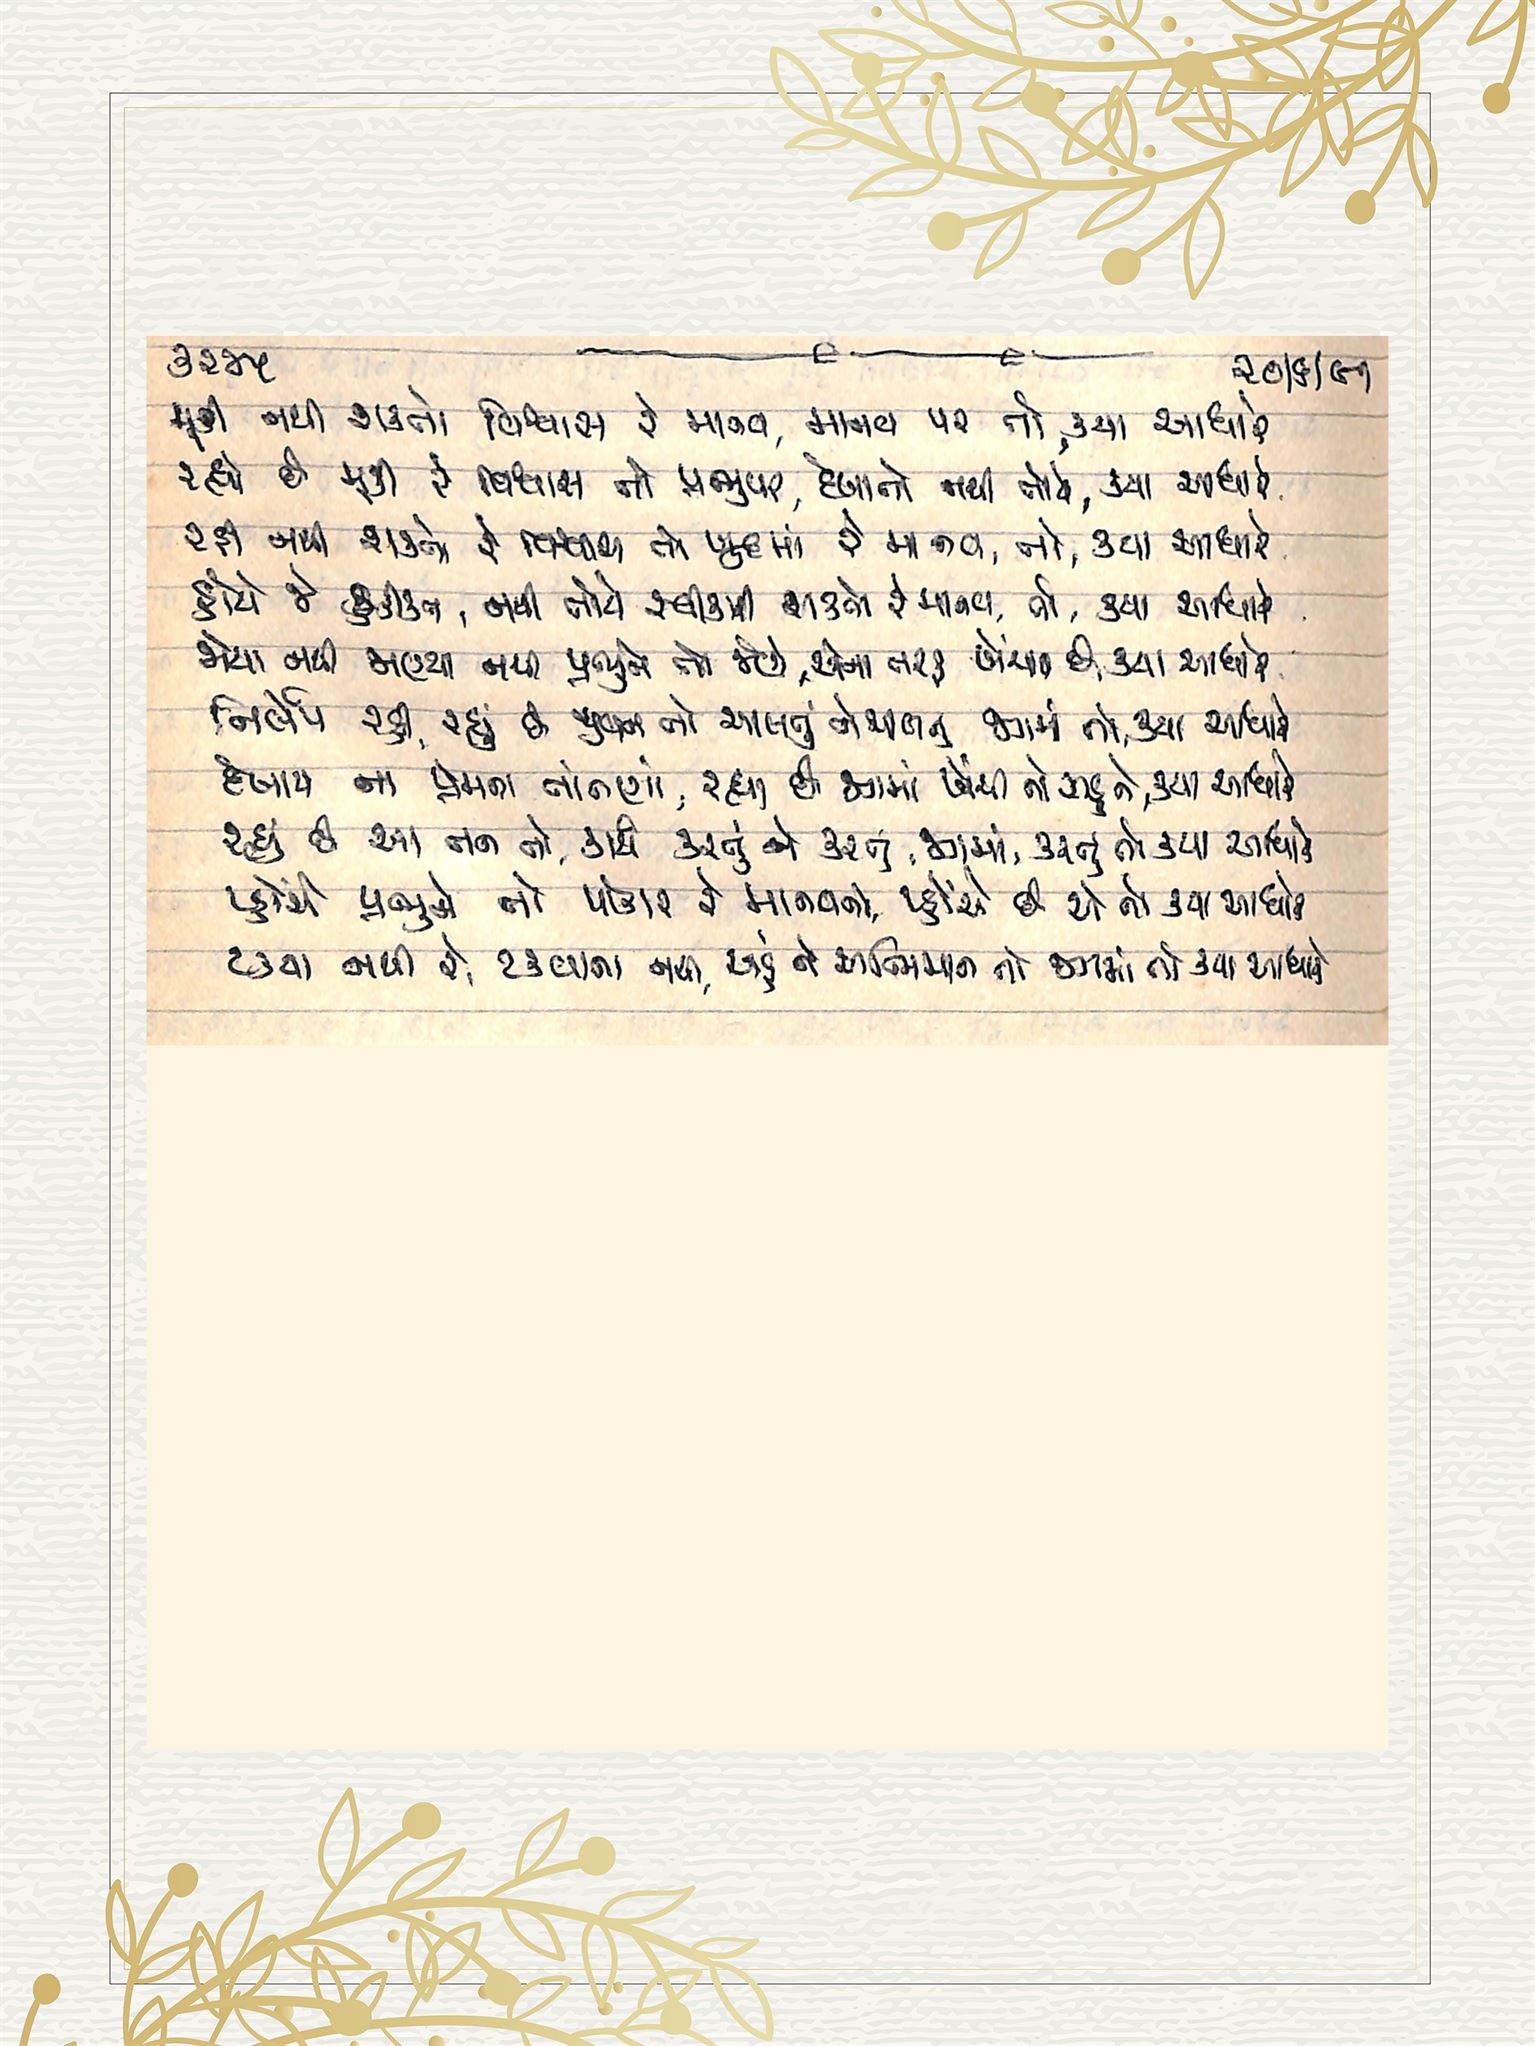 ૩૨૪૫
૨૦/૬/૯૧
મૂકી નથી શકતો વિશ્વાસ રે માનવ, માનવ પર તો, કયા આધારે
રહ્યો છે મૂકી રે વિશ્વાસ તો પ્રભુપર, દેખાતો નથી તોયે, કયા આધારે.
રહી નથી શકતો રે વિશ્વાસ તો ખુદમાં રે માનવ, તો, કયા આધારે.
હોયે જે હકીકત, નથી તોયે સ્વીકારી શકતો રે માનવ, તો, કયા આધારે.
જોયા નથી જાણ્યા નથી પ્રભુને તો જેણે, એના તરફ ખેંચાય છે, કયા આધારે.
નિર્લેપ રહી, રહ્યું છે જીવન તો ચાલતું ને ચાલતું જગમાં તો, કયા આધારે
દેખાય ના પ્રેમના તાંતણાં, રહ્યા છે જગમાં ખેંચી તો સહુને, કયા આધારે
રહ્યું છે આ તન તો, કાર્ય કરતું ને કરતું, જગમાં, કરતું તો કયા આધારે
પ્હોંચે પ્રભુને તો પોકાર રે માનવનો, પ્હોંચે છે એ તો કયા આધારે
ટક્યા નથી રે, ટકવાના નથી, અહં ને અભિમાન તો જગમાં તો કયા આધારે